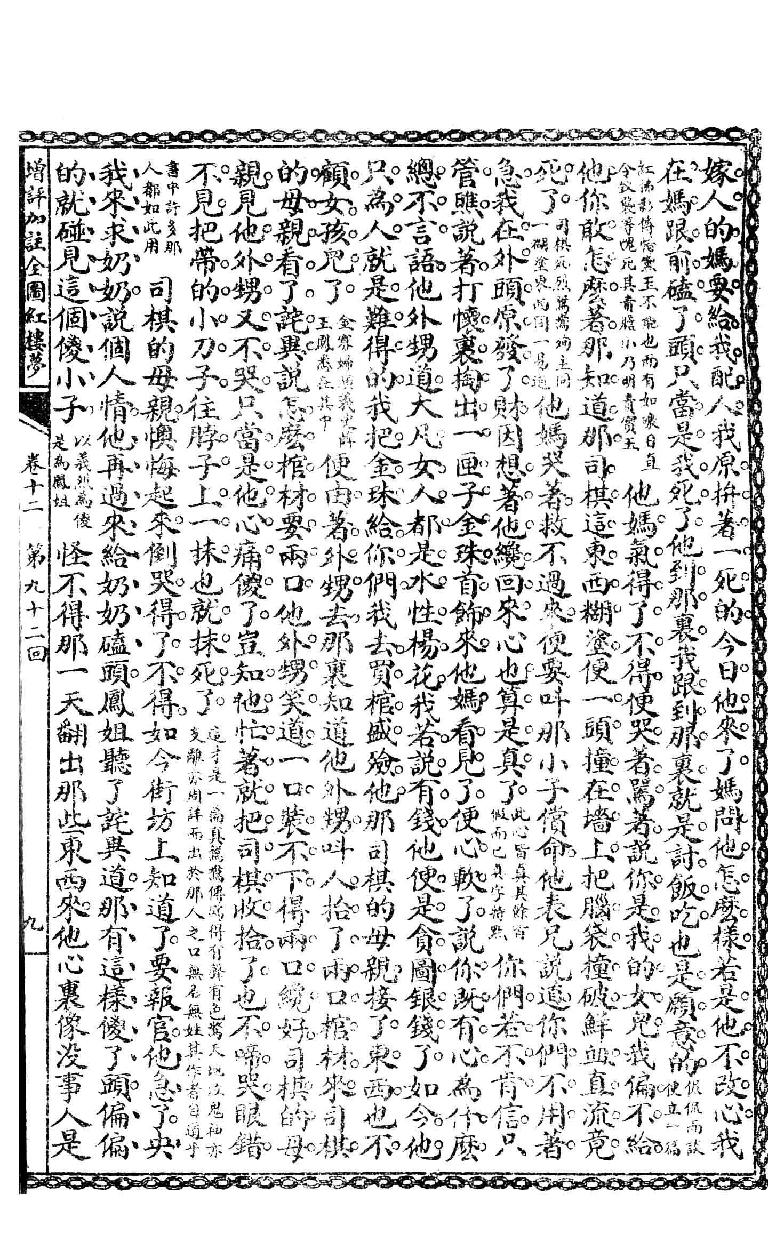 嫁人的媽要給我配人我原拚著一死的今日他來了媽問他怎麽樣若是他不改心我
在媽跟前磕了頭只當是我死了他到那裏我跟到那裏就是討飯吃也是願意的
他媽氣得了不得便哭著罵著說你是我的女兒我偏不給
他你敢怎麽著那知道那司棋這東西糊塗便一頭撞在墻上把腦袋撞破鮮血直流竟
死了 他媽哭著救不過來便要叫那小子償命他表兄說道你們不用著
急我在外頭原發了財因想著他纔回來心也算是真了 你們若不肯信只
管瞧說著打懷裏掏出一匣子金珠首飾來他媽看見了便心軟了說你既有心為什麽
總不言語他外甥道大凡女人都是水性楊花我若說有錢他便是貪圖銀錢了如今他
只為人就是難得的我把金珠給你們我去買棺盛殮他那司棋的母親接了東西也不
顧女孩兒了 便由著外甥去那裏知道他外甥叫人抬了兩口棺材來司棋
的母親看了詫異說怎麽棺材要兩口他外甥笑道一口裝不下得兩口纔好司棋的母
親見他外甥又不哭只當是他心痛傻了豈知他忙著就把司棋收拾了也不啼哭眼錯
不見把帶的小刀子往脖子上一抹也就抹死了
書中許多那
人都如此用
司棋的母親懊悔起來倒哭得了不得如今街坊上知道了要報官他急了央
我來求奶奶說個人情他再過來給奶奶磕頭鳳姐聽了詫異道那有這樣傻了頭偏偏
的就碰見這個傻小子
以義烈為傻
是為鳳姐
怪不得那一天翻出那些東西來他心裏像没事人是
增評加註全圖紅樓夢
卷十二 第九十二回
九